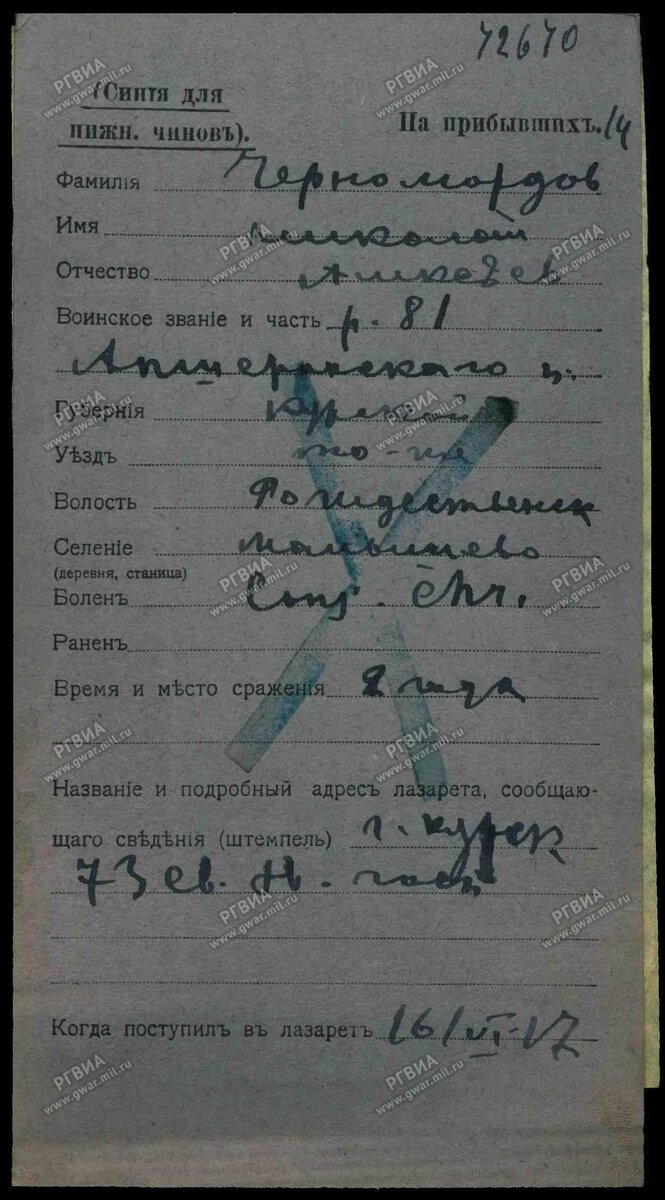 72670
(Синія для
нижн. чиновъ).
На прибывшихъ. 14
Фамилія Черномордов
Имя Николай
Отчество
Воинское званіе и часть р. 81
Апшеронскаго п.
Губернія Курской
Уѣздъ то-же
Волость Рождественск
Селеніе Малышево
(деревня, станица)
Боленъ Conj. chr.
Раненъ
Время и мѣсто сраженія 2 года
Названіе и подробный адресъ лазарета, сообщаю-
щаго свѣдѣнія (штемпель) г. Курск
73 св. Н. госп
Когда поступилъ въ лазаретъ 16/VI-17
РГВИА
www.gwar.mil.ru